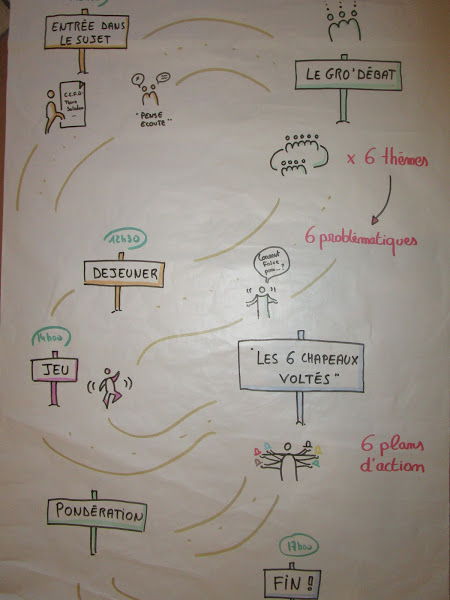 ENTRÉE DANS
LE SUJET
LE GRO'DÉBAT
"PENSE
ECOUTE"
x 6 thèmes
6 problématiques
12h30
DEJEUNER
Comment
faire
pour...?
14h00
JEU
"LES 6 CHAPEAUX
VOLTÉS"
6 plans
d'action
PONDÉRATION
17h00
FIN !